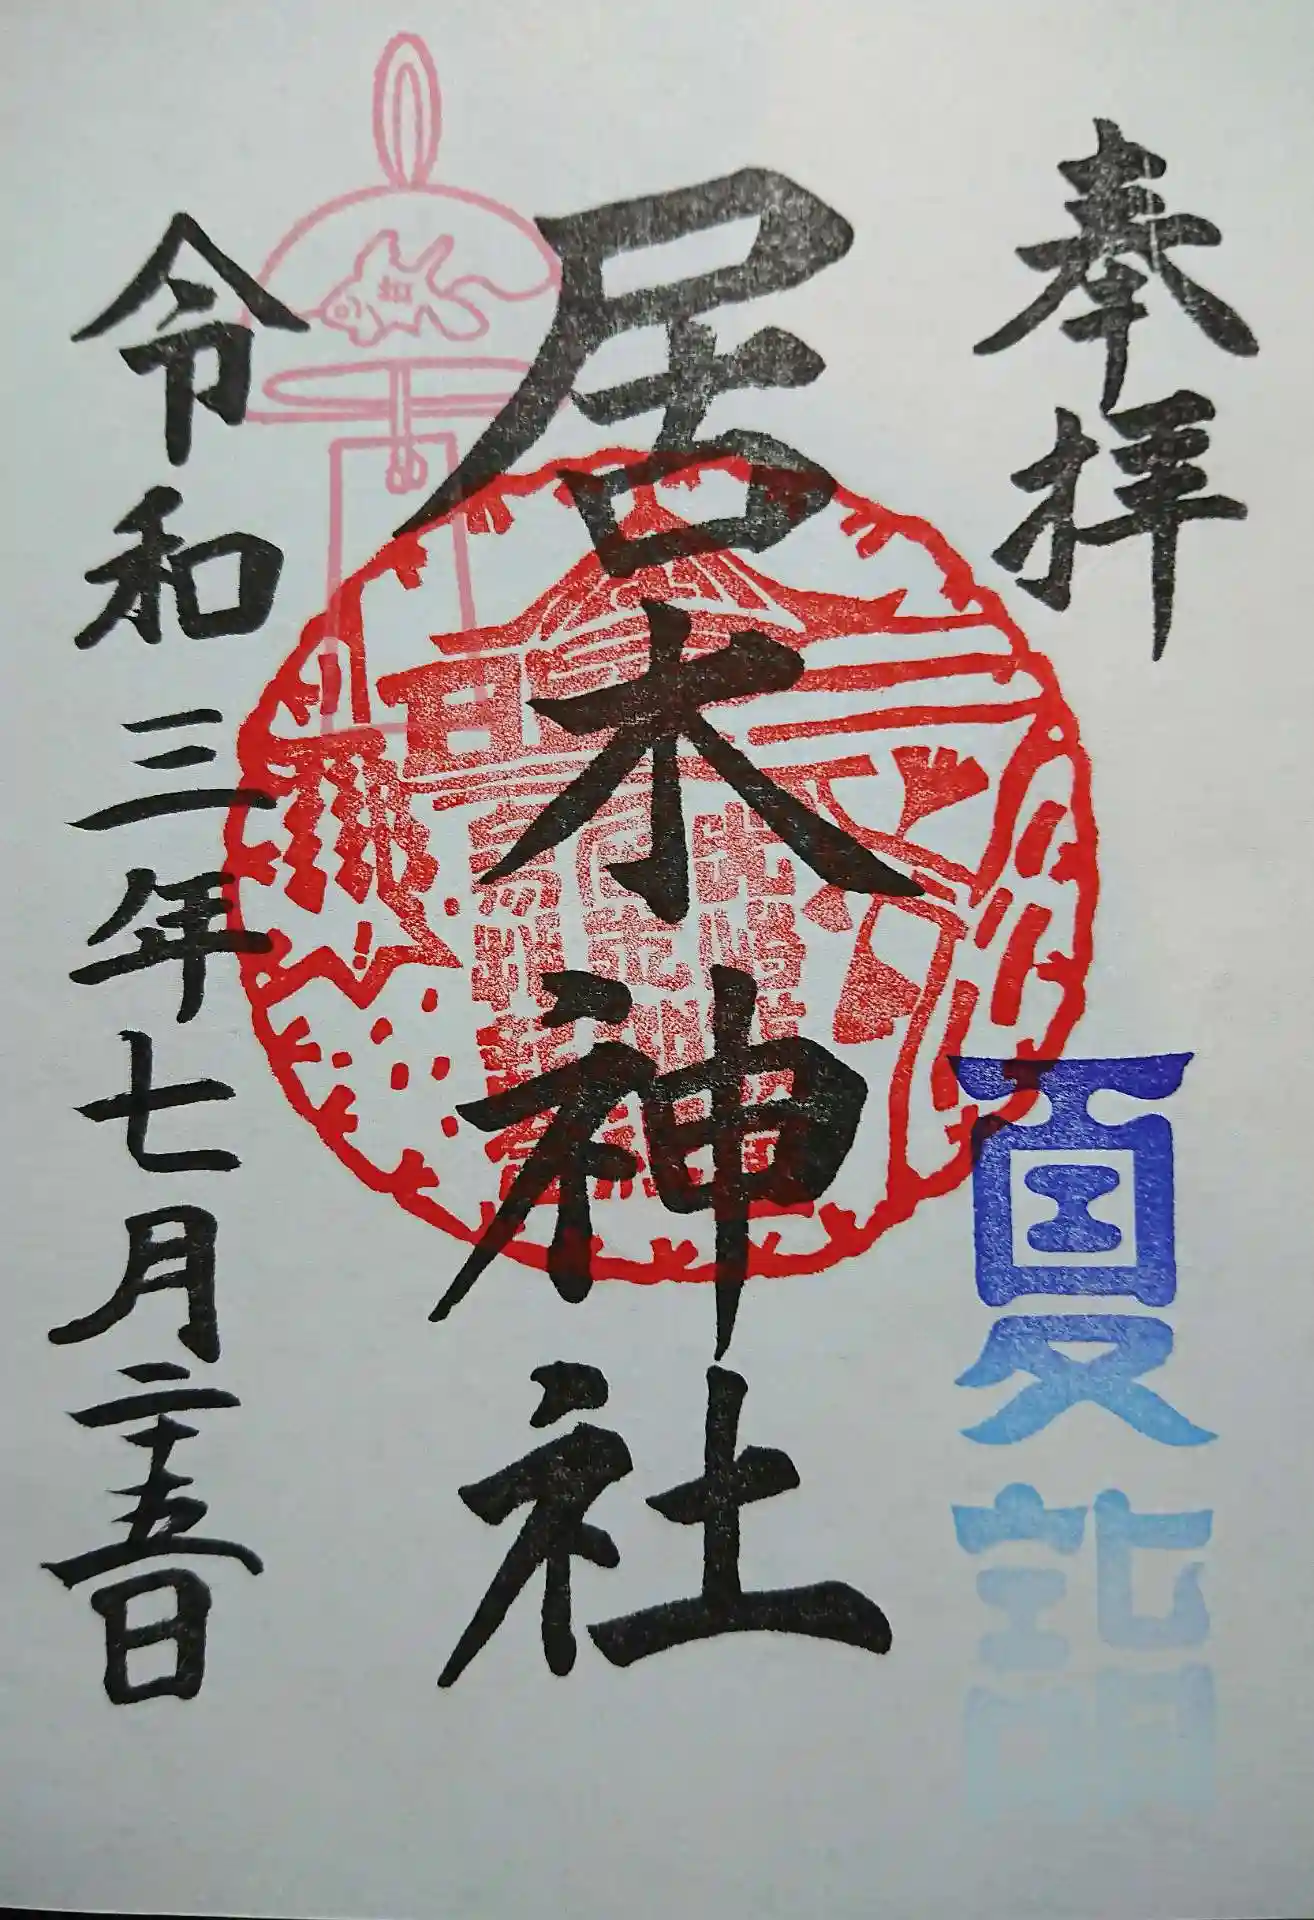 奉拝
夏詣
居木神社
令和三年七月二十五日